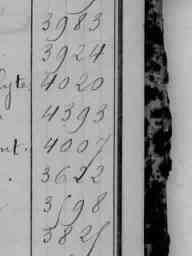 3983
3924
lyte 4020
4393
nt. 4007
3622
3598
3825